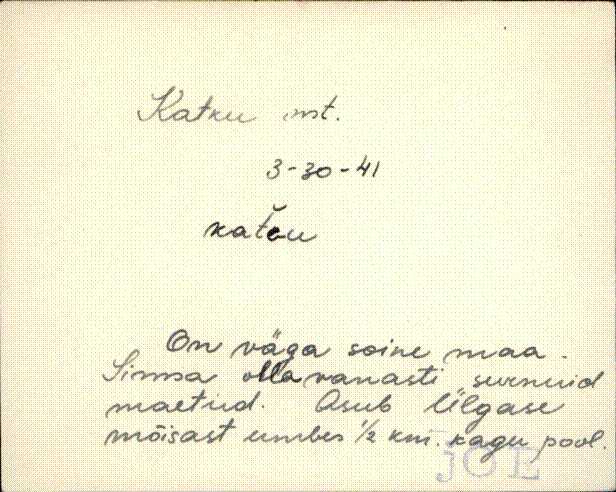 Katku mst.
3-30-41
katku
On väga soine maa.
Sinna olla vanasti surnuid
maetud. Asub Ülgase
mõisast umbes ½ km. kagu pool.
JÕE